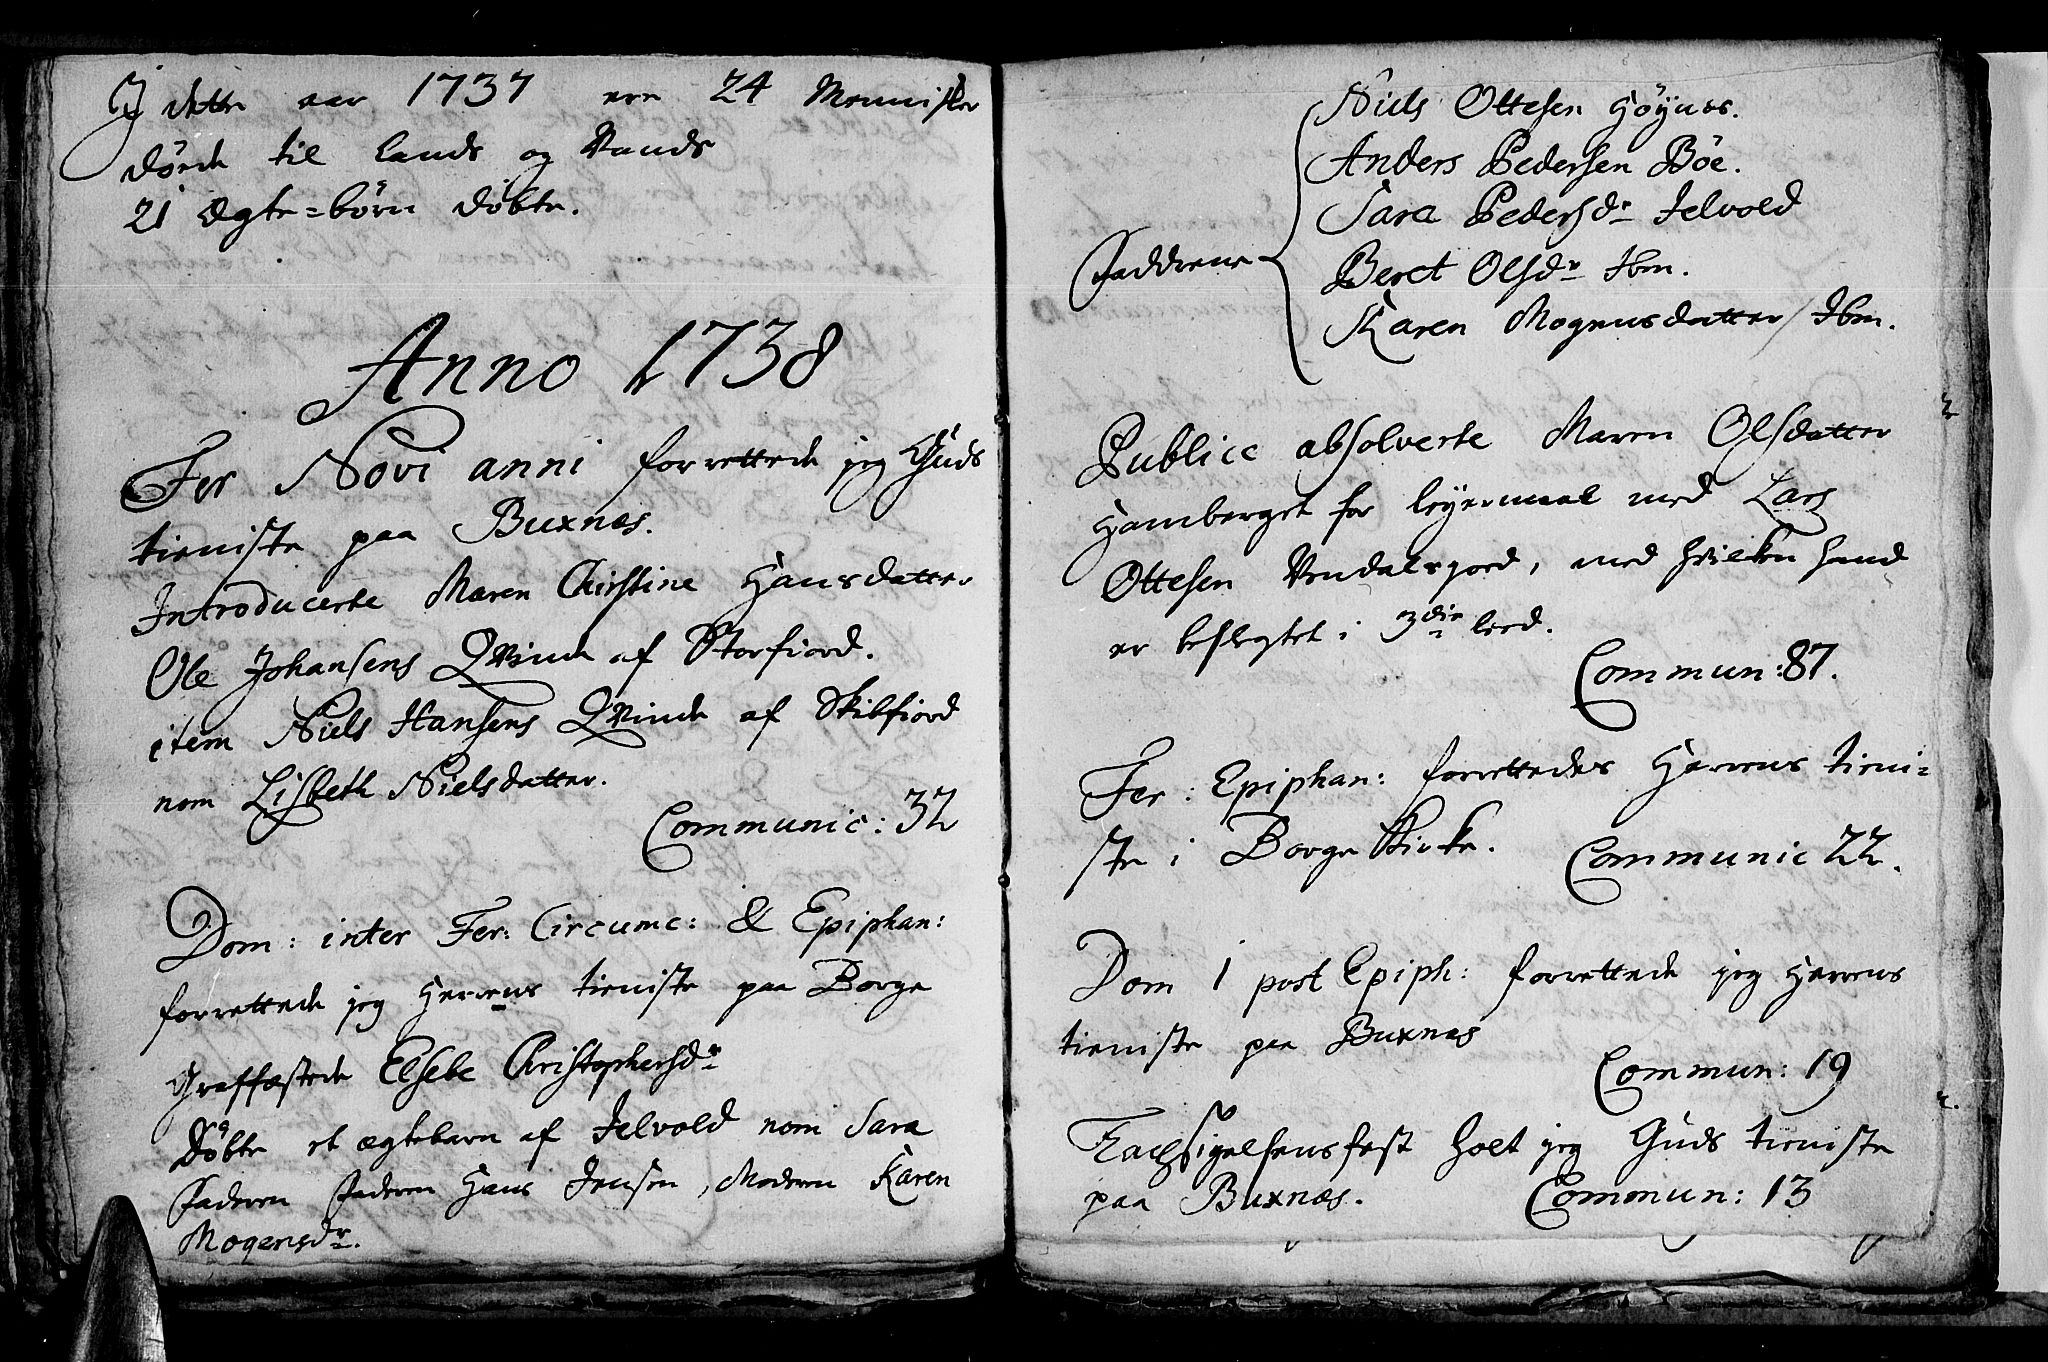 I dette aar 1737 ere 24 Mennisker
dørde til lands og Vands
21 Ægte=børn døbte.
Anno 1738
Fer Novi anni forrettede jeg Guds
tieniste paa Buxnæs.
Introducerte Maren Christine Hansdatter
Ole Johansens Qvinde af Storfiord.
item Niels Hansens Qvinde af Skibfiord
nom Lisbeth Nielsdatter.
Communic: 32
Dom: inter Fer: Circumc: & Epiphan:
forrettede jeg Herrens tieniste paa Borge
Graffæstede Elsebe Christophersdr
Døbte et ægtebarn af Jelvold nom Sara
Faderen Faderen Hans Jensen, Moderen Karen
Mogensdr.
Fadderne
Niels Ottesen Høynes.
Anders Pedersen Böe.
Sara Pedersdr Jelvold
Beret Olsdr Ibm.
Karen Mogensdatter Ibm.
Publice absolverte Maren Olsdatter
Hamberget for leyermaal med Lars
Ottesen Vendalsjord, med hvilken hand
er beslegtet i 3die leed.
Commun: 87.
Fer: Epiphan: forrettedes Herrens tieni=
ste i Borge Kirke. Communic 22.
Dom 1 post Epiph: forrettede jeg Herrens
tieniste paa Buxnæs
Commun: 19
Tachsigelsensfest holt jeg Guds tieniste
paa Buxnæs. Commun: 13